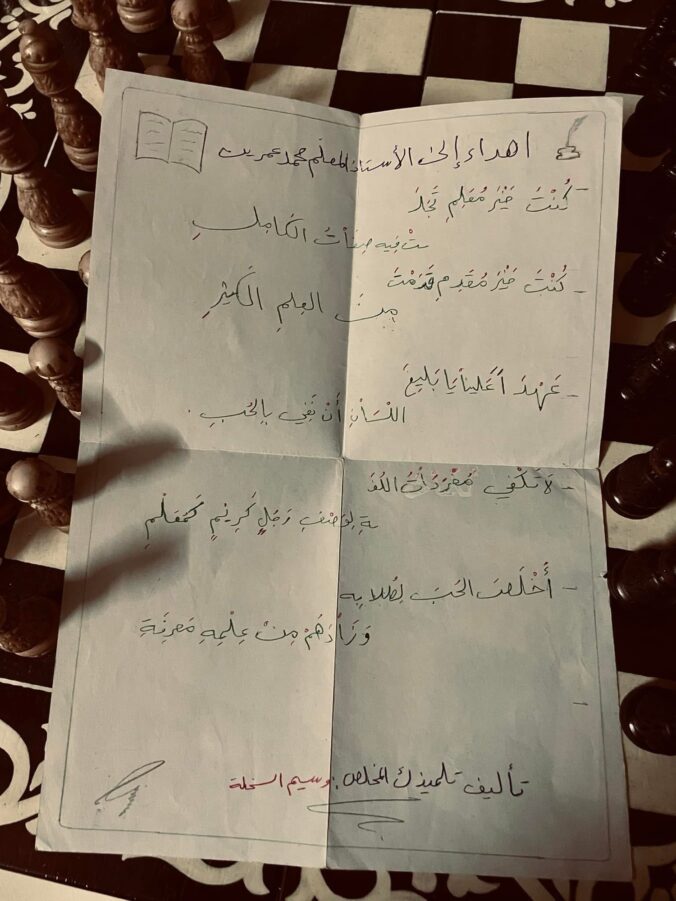 اهداء إلى الأستاذ المعلم محمد عمرين
- كُنْتَ خَيْرَ مُعَلِمِ تَجَلَّ
تْ فِيهِ صِفَاتُ الكَامِلِ
- كُنْتَ خَيْرَ مُقَدِمِ قَدَمْتَ
مِنَ العِلمِ الكَثِيْرِ
- عَهْدَ اً عَلَيناً يَا بَلِيغَ
اللسَانِ أَنْ نَفِي بِالحُبِ .
- لَا تَكْفِي مُفْرَدَاتُ اللُغَ
ةِ لِوَصْفِ رَجُلٍ كَرِيْمٍ كَمُعَلْمِ
- أَخْلَصَ الحُبَ لِطُلابِهِ
وَزَادَهُمْ مِنْ عِلْمِهِ مَعرِفَةِ
-
تأليف تلميذك المخلص : وسيم السخلة